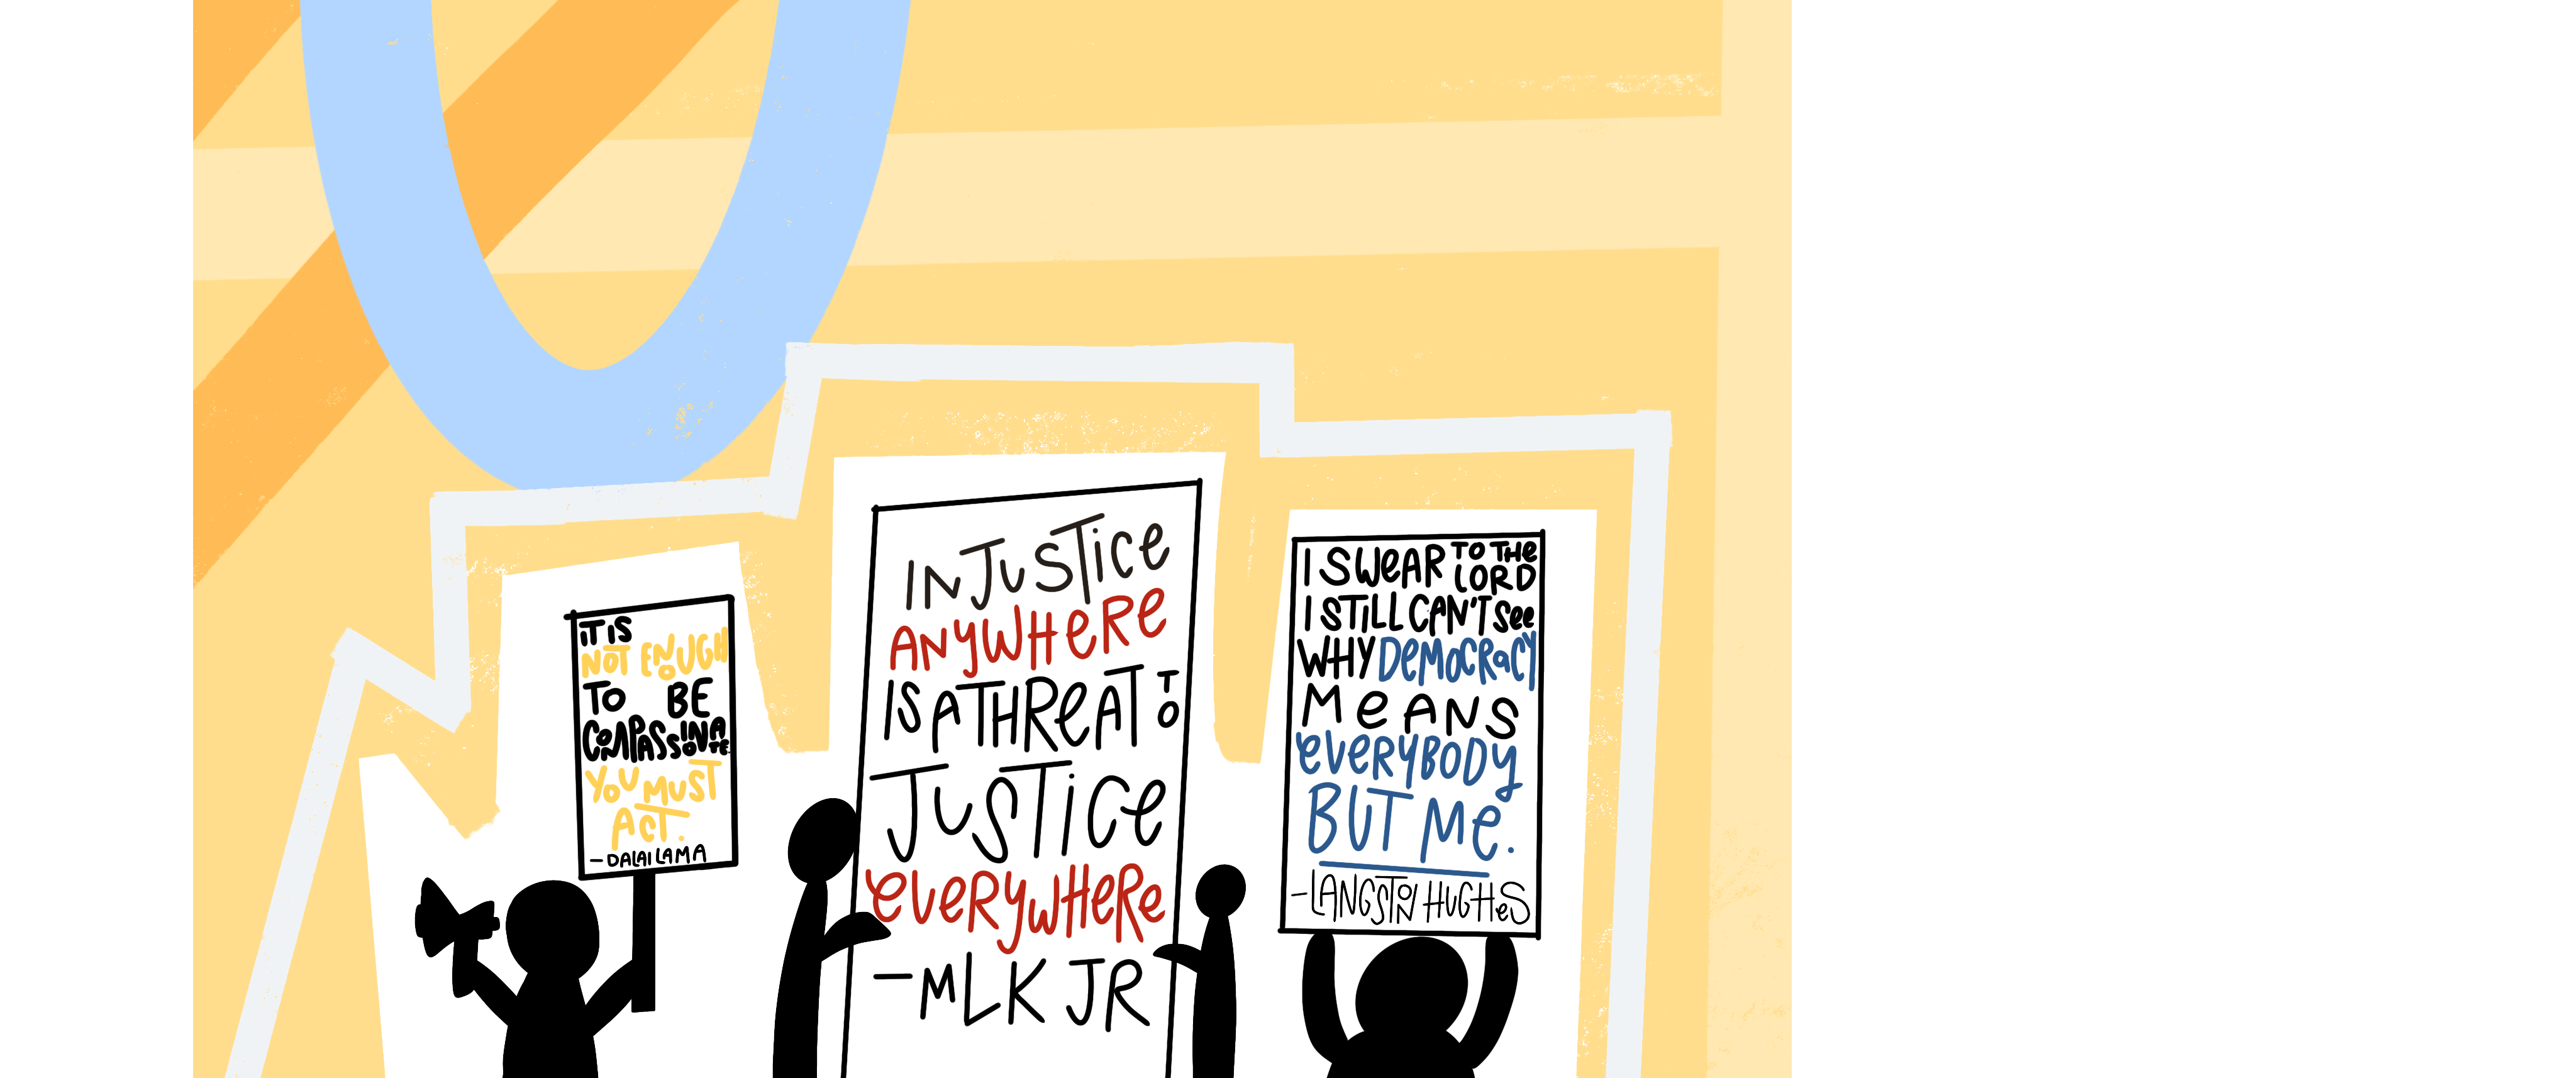 iT iS
NOT ENOUGH
TO BE
COMPASSIONATE
YOU MUST
ACT.
-DALAI LAMA
INJUSTiCe
ANYWHeRe
IS A THReAT TO
JUSTiCe
eVeRYWHeRe
-MLK JR
I SWeAR TO THe LORD
I STiLL CAN'T See
WHY DeMOCRaCY
MeANS
eVeRYBODY
BUT Me.
-LANGSTON HUGHeS